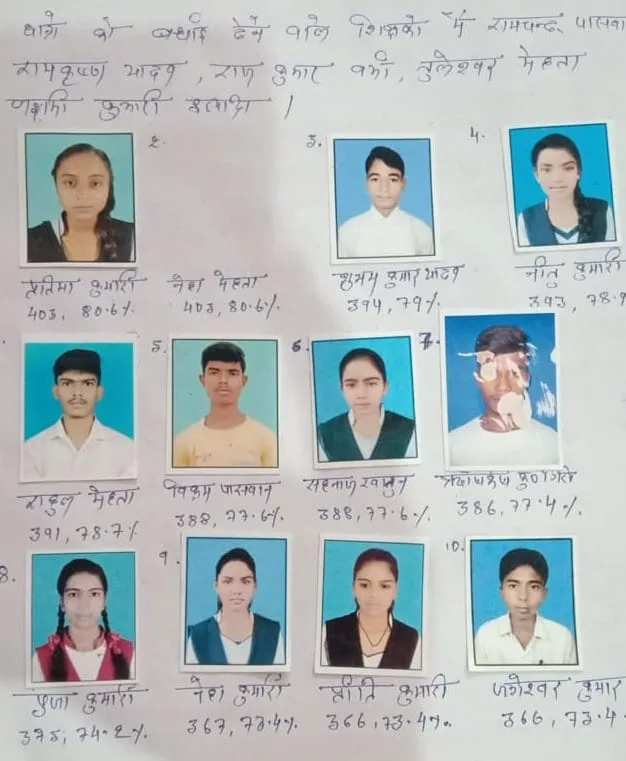 को बधाई देने वाले शिक्षको में रामचन्द्र
रामकृष्ण यादव, राज कुमार वर्मा, तुलेश्वर मेहता
लक्ष्मी कुमारी इत्यादि ।
2. 3. 4.
प्रतिमा कुमारी नेहा मेहता शुभम कुमार यादव नीतु कुमारी
403, 80.6%. 403, 80.6%. 394, 79% 393, 78.
5. 6. 7.
राहुल मेहता विक्रम पासवान खातुन
391, 78.7% 388, 77.6%. 388, 77.6%. 386, 77.4%.
8. 9. 10.
पुजा कुमारी नेहा कुमारी प्रीति कुमारी जागेश्वर कुमार
375, 74.2% 367, 73.4% 366, 73.4%. 366, 73.4